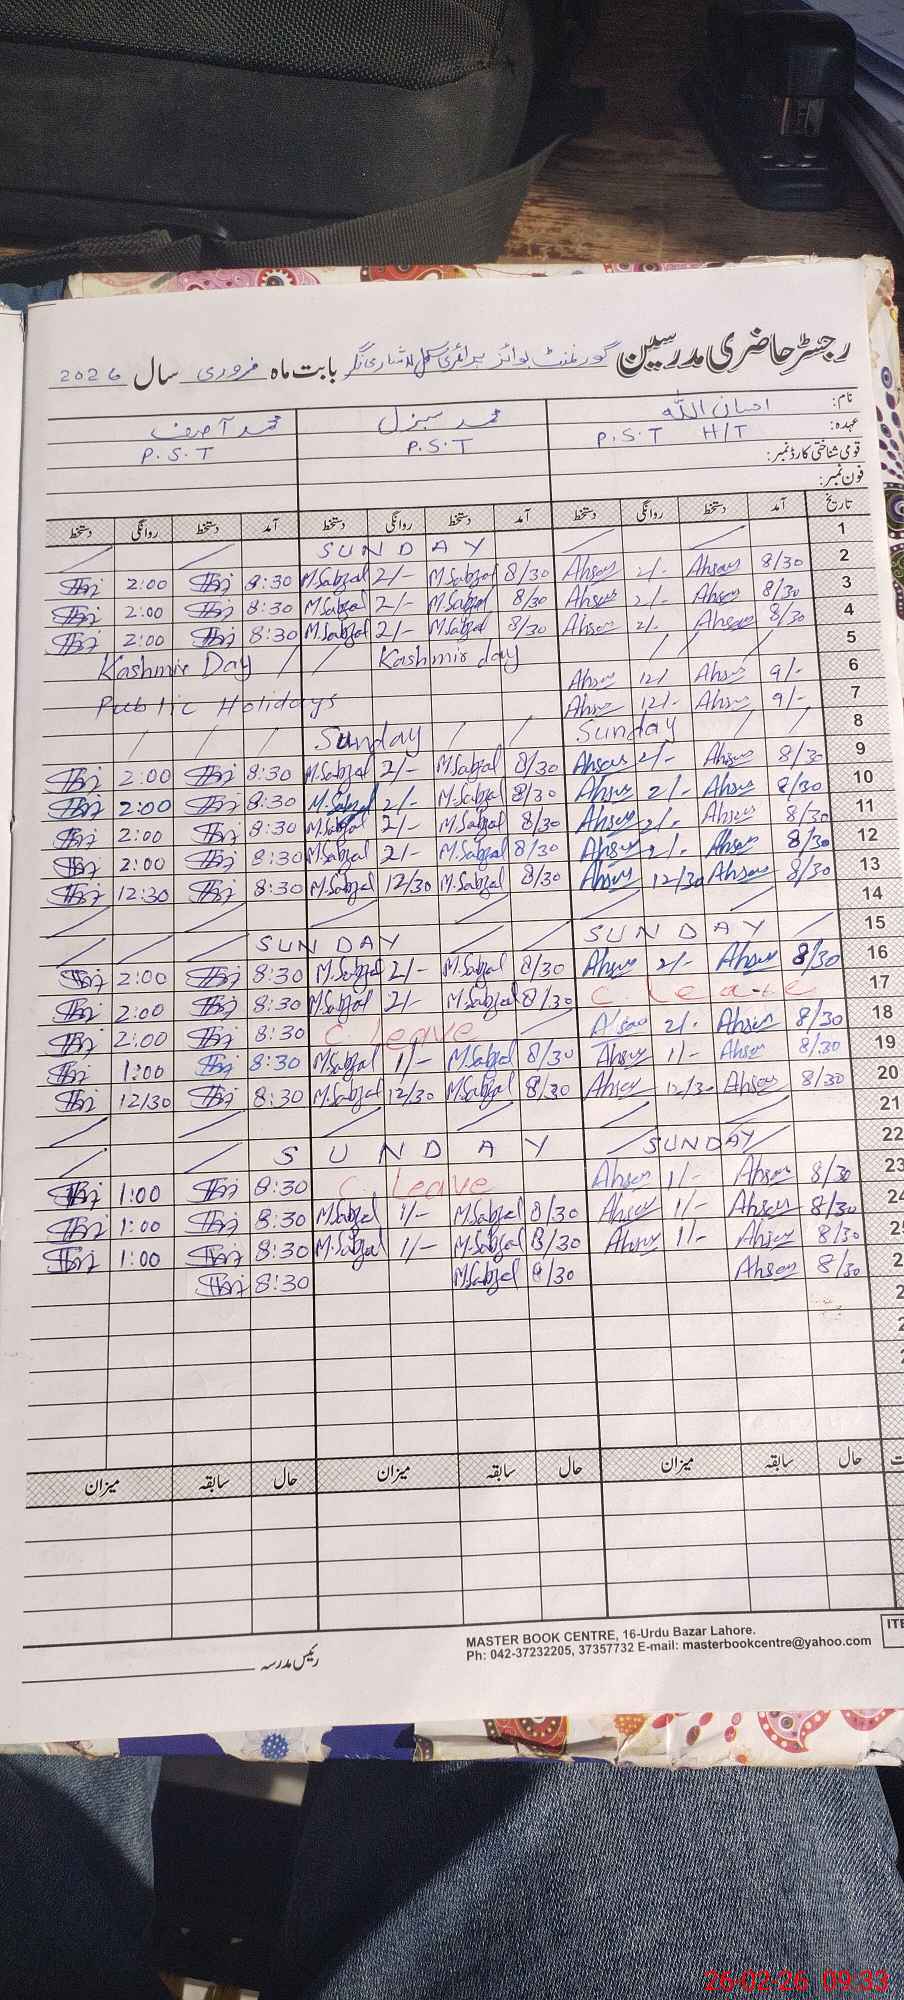 رجسٹر حاضری مدرسین گورنمنٹ بوائز پرائمری سکول بابت ماہ فروری سال 2026
نام: احسان اللہ محمد سبزل محمد آصف
عہدہ: P.S.T H/T P.S.T P.S.T
قومی شناختی کارڈ نمبر:
فون نمبر:
تاریخ آمد دستخط روانگی دستخط آمد دستخط روانگی دستخط آمد دستخط روانگی دستخط
1 SUNDAY
2 8/30 Ahsan 2/- Ahsan 8/30 M.Sabzal 2/- M.Sabzal 8:30 2:00
3 8/30 Ahsan 2/- Ahsan 8/30 M.Sabzal 2/- M.Sabzal 8:30 2:00
4 8/30 Ahsan 2/- Ahsan 8/30 M.Sabzal 2/- M.Sabzal 8:30 2:00
5 Kashmir day Kashmir Day
6 9/- Ahsan 12/- Ahsan Public Holidays
7 9/- Ahsan 12/- Ahsan
8 Sunday Sunday
9 8/30 Ahsan 2/- Ahsan 8/30 M.Sabzal 2/- M.Sabzal 8:30 2:00
10 8/30 Ahsan 2/- Ahsan 8/30 M.Sabzal 2/- M.Sabzal 8:30 2:00
11 8/30 Ahsan 2/- Ahsan 8/30 M.Sabzal 2/- M.Sabzal 8:30 2:00
12 8/30 Ahsan 2/- Ahsan 8/30 M.Sabzal 2/- M.Sabzal 8:30 2:00
13 8/30 Ahsan 12/30 Ahsan 8/30 M.Sabzal 12/30 M.Sabzal 8:30 12:30
14
15 SUNDAY SUNDAY
16 8/30 Ahsan 2/- Ahsan 8/30 M.Sabzal 2/- M.Sabzal 8:30 2:00
17 C. Leave 8/30 M.Sabzal 2/- M.Sabzal 8:30 2:00
18 8/30 Ahsan 2/- Ahsan C. Leave 8:30 2:00
19 8/30 Ahsan 1/- Ahsan 8/30 M.Sabzal 1/- M.Sabzal 8:30 1:00
20 8/30 Ahsan 12/30 Ahsan 8/30 M.Sabzal 12/30 M.Sabzal 8:30 12/30
21
22 SUNDAY SUNDAY
23 8/30 Ahsan 1/- Ahsan C. Leave 8:30 1:00
24 8/30 Ahsan 1/- Ahsan 8/30 M.Sabzal 1/- M.Sabzal 8:30 1:00
25 8/30 Ahsan 1/- Ahsan 8/30 M.Sabzal 1/- M.Sabzal 8:30 1:00
2 8/30 Ahsan 8/30 M.Sabzal 8:30
حال سابقہ میزان حال سابقہ میزان حال سابقہ میزان
MASTER BOOK CENTRE, 16-Urdu Bazar Lahore.
Ph: 042-37232205, 37357732 E-mail: masterbookcentre@yahoo.com
ITE
رئیس مدرسہ
26-02-26 09:33